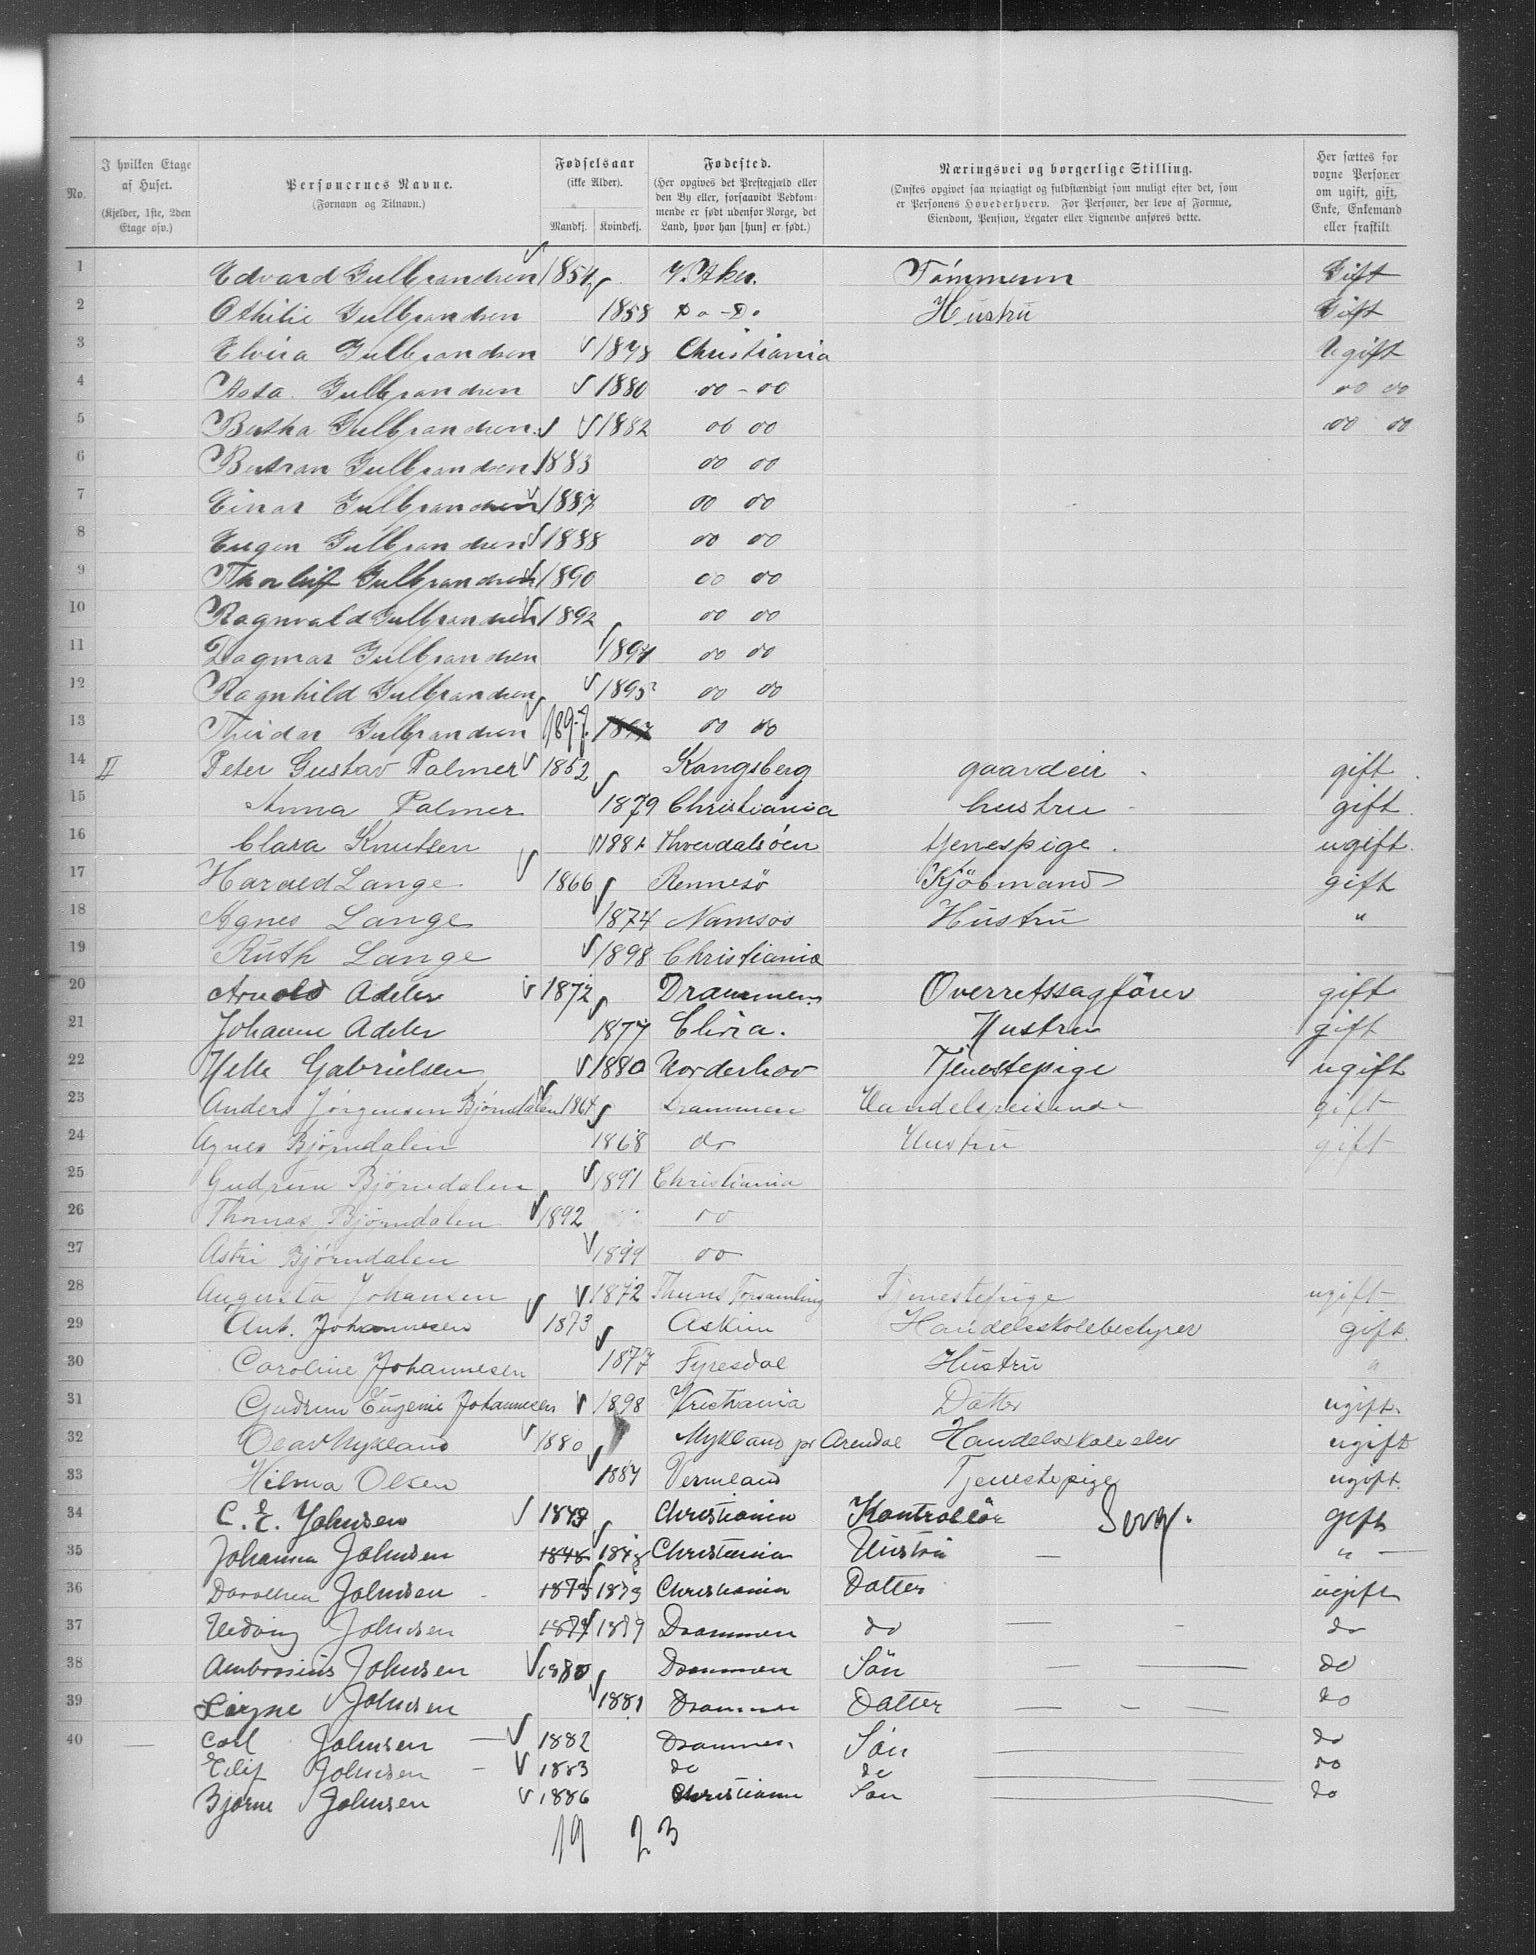 No.
I hvilken Etage af Huset. (Kjelder, 1ste, 2den Etage osv.)
Personernes Navne. (Fornavn og Tilnavn.)
Fødselsaar (ikke Alder). Mandkj. Kvindekj.
Fødested. (Her opgives det Prestegjæld eller den By eller, forsaavidt Vedkommende er født udenfor Norge, det Land, hvor han [hun] er født.)
Næringsvei og borgerlige Stilling. (Ønskes opgivet saa nøiagtigt og fuldstændigt som muligt efter det, som er Personens Hovederhverv. For Personer, der leve af Formue, Eiendom, Pension, Legater eller Lignende anføres dette.
Her sættes for voxne Personer om ugift, gift, Enke, Enkemand eller fraskilt
1 Edvard Gulbrandsen 1854 V. Aker. Tømmerm Gift
2 Othilie Gulbrandsen 1858 Do - Do Hustru Gift
3 Elvira Gulbrandsen 1878 Christiania Ugift
4 Asta Gulbrandsen 1880 do - do do do
5 Bertha Gulbrandsen 1882 do do do do
6 Bertran Gulbrandsen 1883 do do
7 Einar Gulbrandsen 1887 do do
8 Eugen Gulbrandsen 1888 do do
9 Thorleif Gulbrandsen 1890 do do
10 Ragnvald Gulbrandsen 1892 do do
11 Dagmar Gulbrandsen 1894 do do
12 Ragnhild Gulbrandsen 1895 do do
13 Theidar Gulbrandsen 1897. 1897 do do
14 II Peter Gustav Palmer 1852 Kongsberg gaardeir gift
15 Anna Palmer 1879 Christiania hustru gift
16 Clara Knutsen Thverdalsöen tjenespige ugift
17 Harald Lange 1866 Rennesö Kjöbmand gift
18 Agnes Lange 1874 Namsos Hustru "
19 Ruth Lange 1898 Christiania
20 Arnold Adeler 1872 Drammen Overretssagförer gift
21 Johanne Adeler 1877 Chria. Hustru gift
22 Helle Gabrielsen 1880 Norderhov Tjenestepige ugift
23 Anders Jørgensen Bjørndalen 1864 Drammen Handelsreisende gift
24 Agnes Bjørndalen 1868 do Hustru gift
25 Gudrun Bjørndalen 1891 Christiania
26 Thomas Bjørndalen 1892 do
27 Astri Bjørndalen 1899 do
28 Augusta Johansen 1872 Thuns Forsamling Tjenestepige ugift
29 Ant. Johannesen 1873 Askim Handelsskolebestyrer gift
30 Caroline Johannesen 1877 Fyresdal Hustru "
31 Gudrun Eugenie Johannesen 1898 Kristiania Datter ugift
32 Olav Mykland 1880 Mykland pr Arendal Handelsskoleelev ugift
33 Hilma Olsen 1884 Vermland Tjenestepige ugift
34 C. E. Johnsen 1849 Christiania Kontrollør gift
35 Johanna Johnsen 1848 1848 Christiania Hustru "
36 Dorothea Johnsen 1873 1873 Christiania Datter ugift
37 Hedvig Johnsen 1879 1879 Drammen do do
38 Ambrosius Johnsen 1880 Drammen Sön do
39 Signe Johnsen 1881 Drammen Datter do
40 Carl Johnsen 1882 Drammen Sön do
Eilif Johnsen 1883 do do do
Bjarne Johnsen 1886 Christiania Sön do
19 23